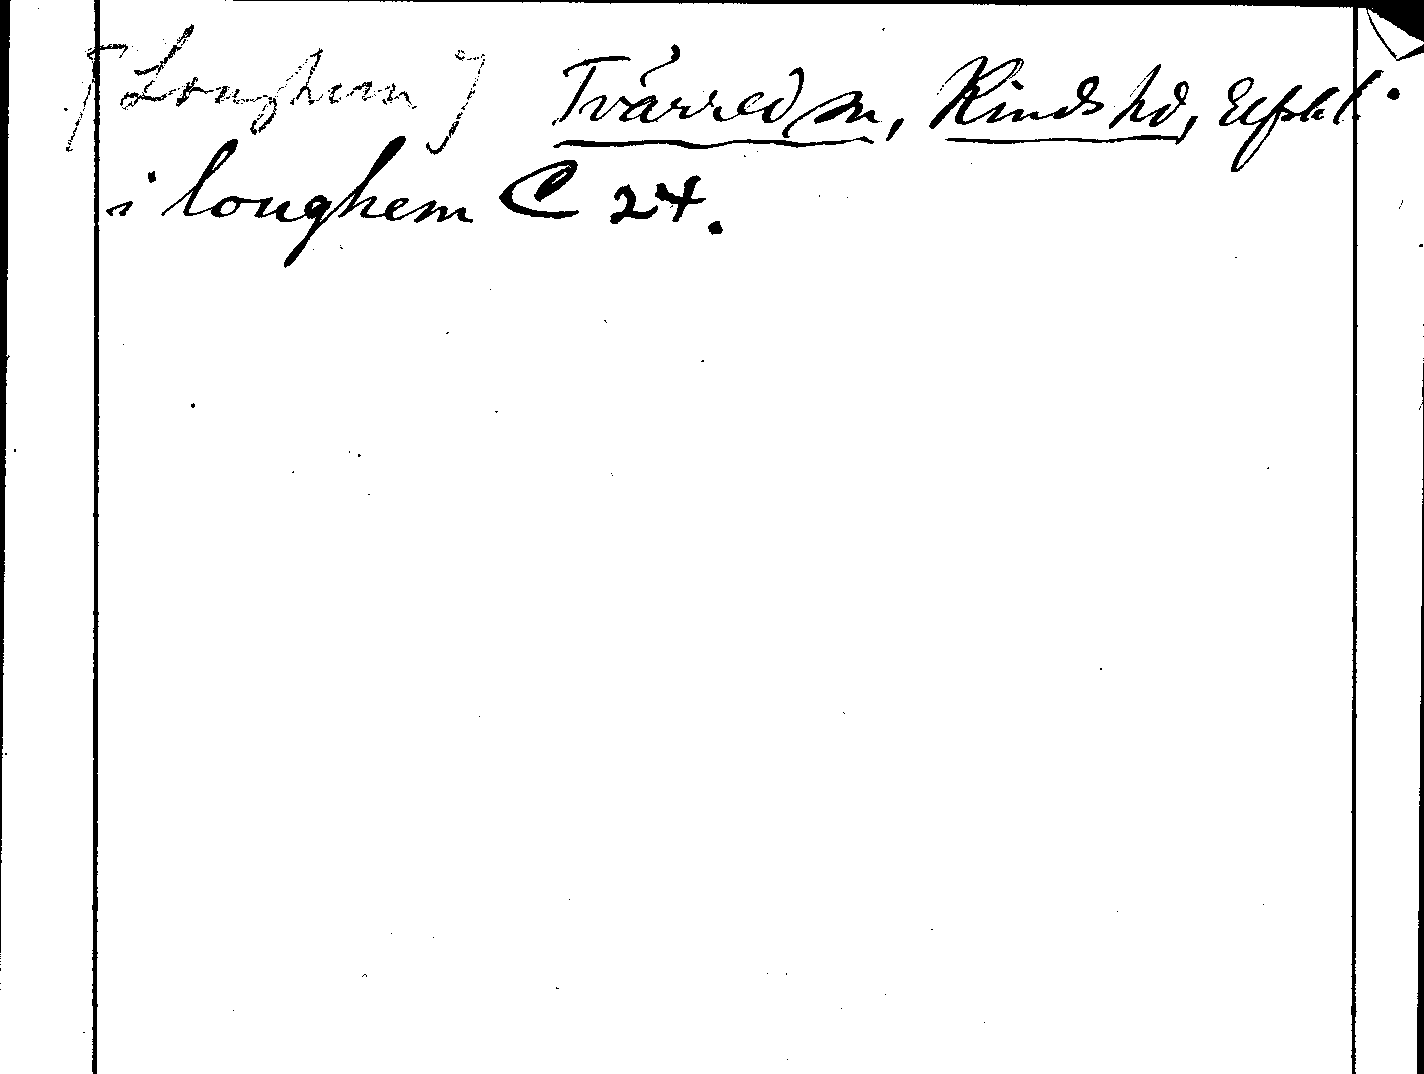 [Longhem] Tvärred sn, Kinds hd, Elfsbl.
i longhem C 24.